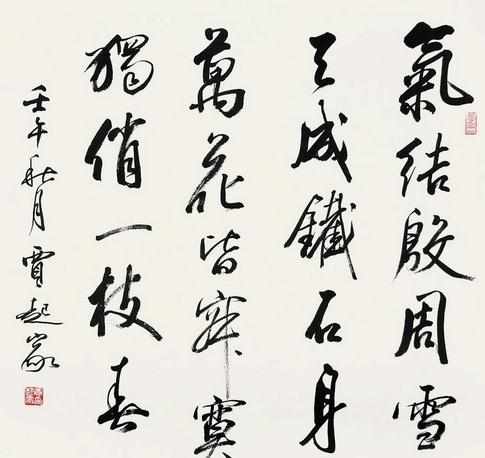 氣結殷周雪
天成鐵石身
萬花皆寂寞
獨俏一枝春
壬午秋月 賈起家